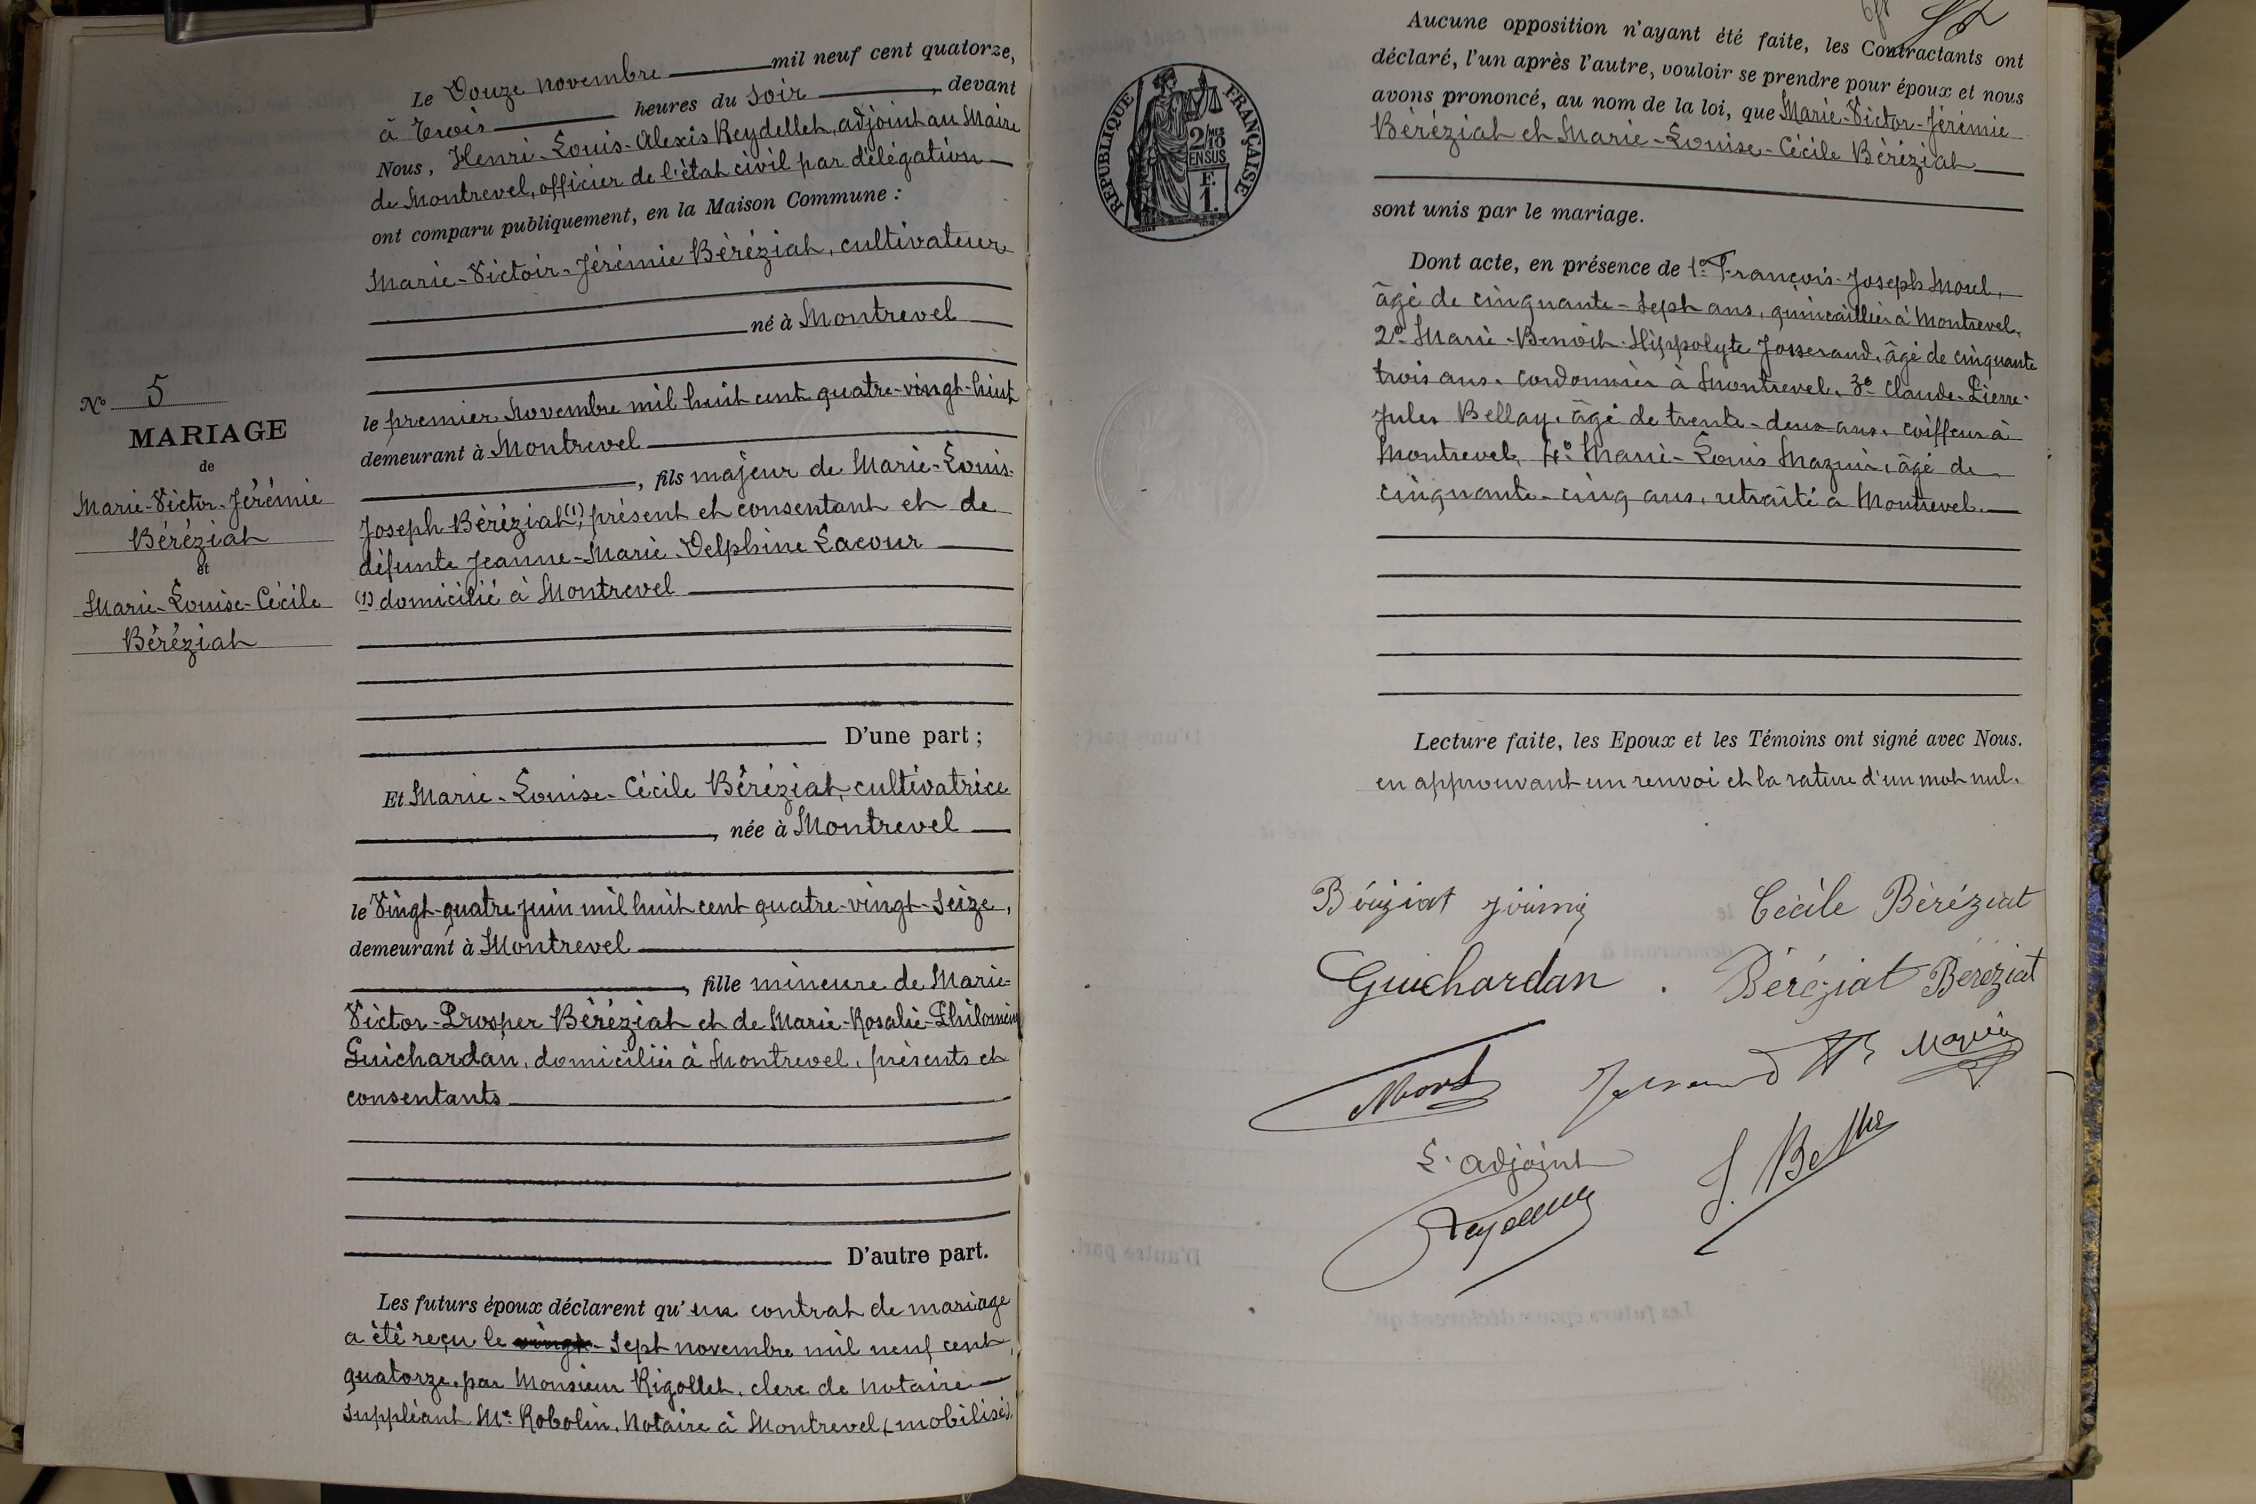 N° 5
MARIAGE
de
Marie-Victor-Jérémie
Béréziat
et
Marie-Louise-Cécile
Béréziat
Le Douze novembre mil neuf cent quatorze,
à Trois heures du soir, devant
Nous, Henri-Louis-Alexis Reydellet, adjoint au Maire
de Montrevel, officier de l'état civil par délégation
ont comparu publiquement, en la Maison Commune :
Marie-Victoir-Jérémie Béréziat, cultivateur
né à Montrevel
le premier Novembre mil huit cent quatre-vingt-huit
demeurant à Montrevel
, fils majeur de Marie-Louis-
Joseph Béréziat (1), présent et consentant et de
défunte Jeanne-Marie Delphine Lacour
(1) domicilié à Montrevel
D'une part ;
Et Marie-Louise-Cécile Béréziat, cultivatrice
, née à Montrevel
le Vingt-quatre juin mil huit cent quatre-vingt-seize,
demeurant à Montrevel
, fille mineure de Marie-
Victor-Prosper Béréziat et de Marie-Rosalie-Philomène
Guichardan, domiciliés à Montrevel, présents et
consentants
D'autre part.
Les futurs époux déclarent qu'un contrat de mariage
a été reçu le vingt-sept novembre mil neuf cent
quatorze, par Monsieur Rigollet, clerc de notaire
suppléant Me Robolin, Notaire à Montrevel, (mobilisé).
RÉPUBLIQUE FRANÇAISE
2/10 MES
EN SUS
F.
1.
Aucune opposition n'ayant été faite, les Contractants ont
déclaré, l'un après l'autre, vouloir se prendre pour époux et nous
avons prononcé, au nom de la loi, que Marie-Victor-Jérémie
Béréziat et Marie-Louise-Cécile Béréziat
sont unis par le mariage.
Dont acte, en présence de 1° François-Joseph Morel,
âgé de cinquante-sept ans, quincaillier à Montrevel,
2° Marie-Benoit-Hippolyte Josserand, âgé de cinquante
trois ans, cordonnier à Montrevel, 3° Claude-Pierre-
Jules Bellay, âgé de trente-deux ans, coiffeur à
Montrevel, 4° Marie-Louis Mazuir, âgé de
cinquante-cinq ans, retraité à Montrevel.
Lecture faite, les Epoux et les Témoins ont signé avec Nous.
en approuvant un renvoi et la rature d'un mot nul.
Béréziat Jérémie Cécile Béréziat
Guichardan Béréziat Béréziat
L'adjoint